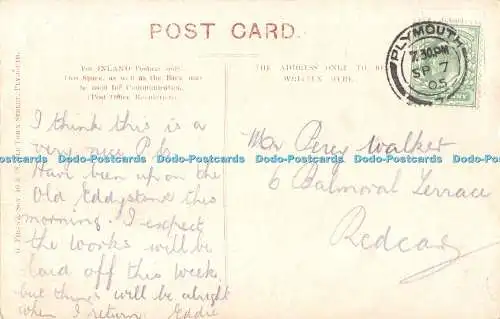 POST CARD.
For INLAND Postage only,
this Space, as well as the Back may
be used for Communication.
(Post Office Regulation).
THE ADDRESS ONLY TO BE
WRITTEN HERE.
PLYMOUTH
7.30 PM
SP 7
05
I think this is a
very nice P.C.
Have been up on the
Old Eddystone this
morning. I expect
the works will be
laid off this week,
but things will be alright
when I return. Eddie
Mr Percy Walker
6 Balmoral Terrace
Redcar
Data-Postcards Data-Postcards Data-Postcards Data-Postcards Data-Postcards Data-Postcards